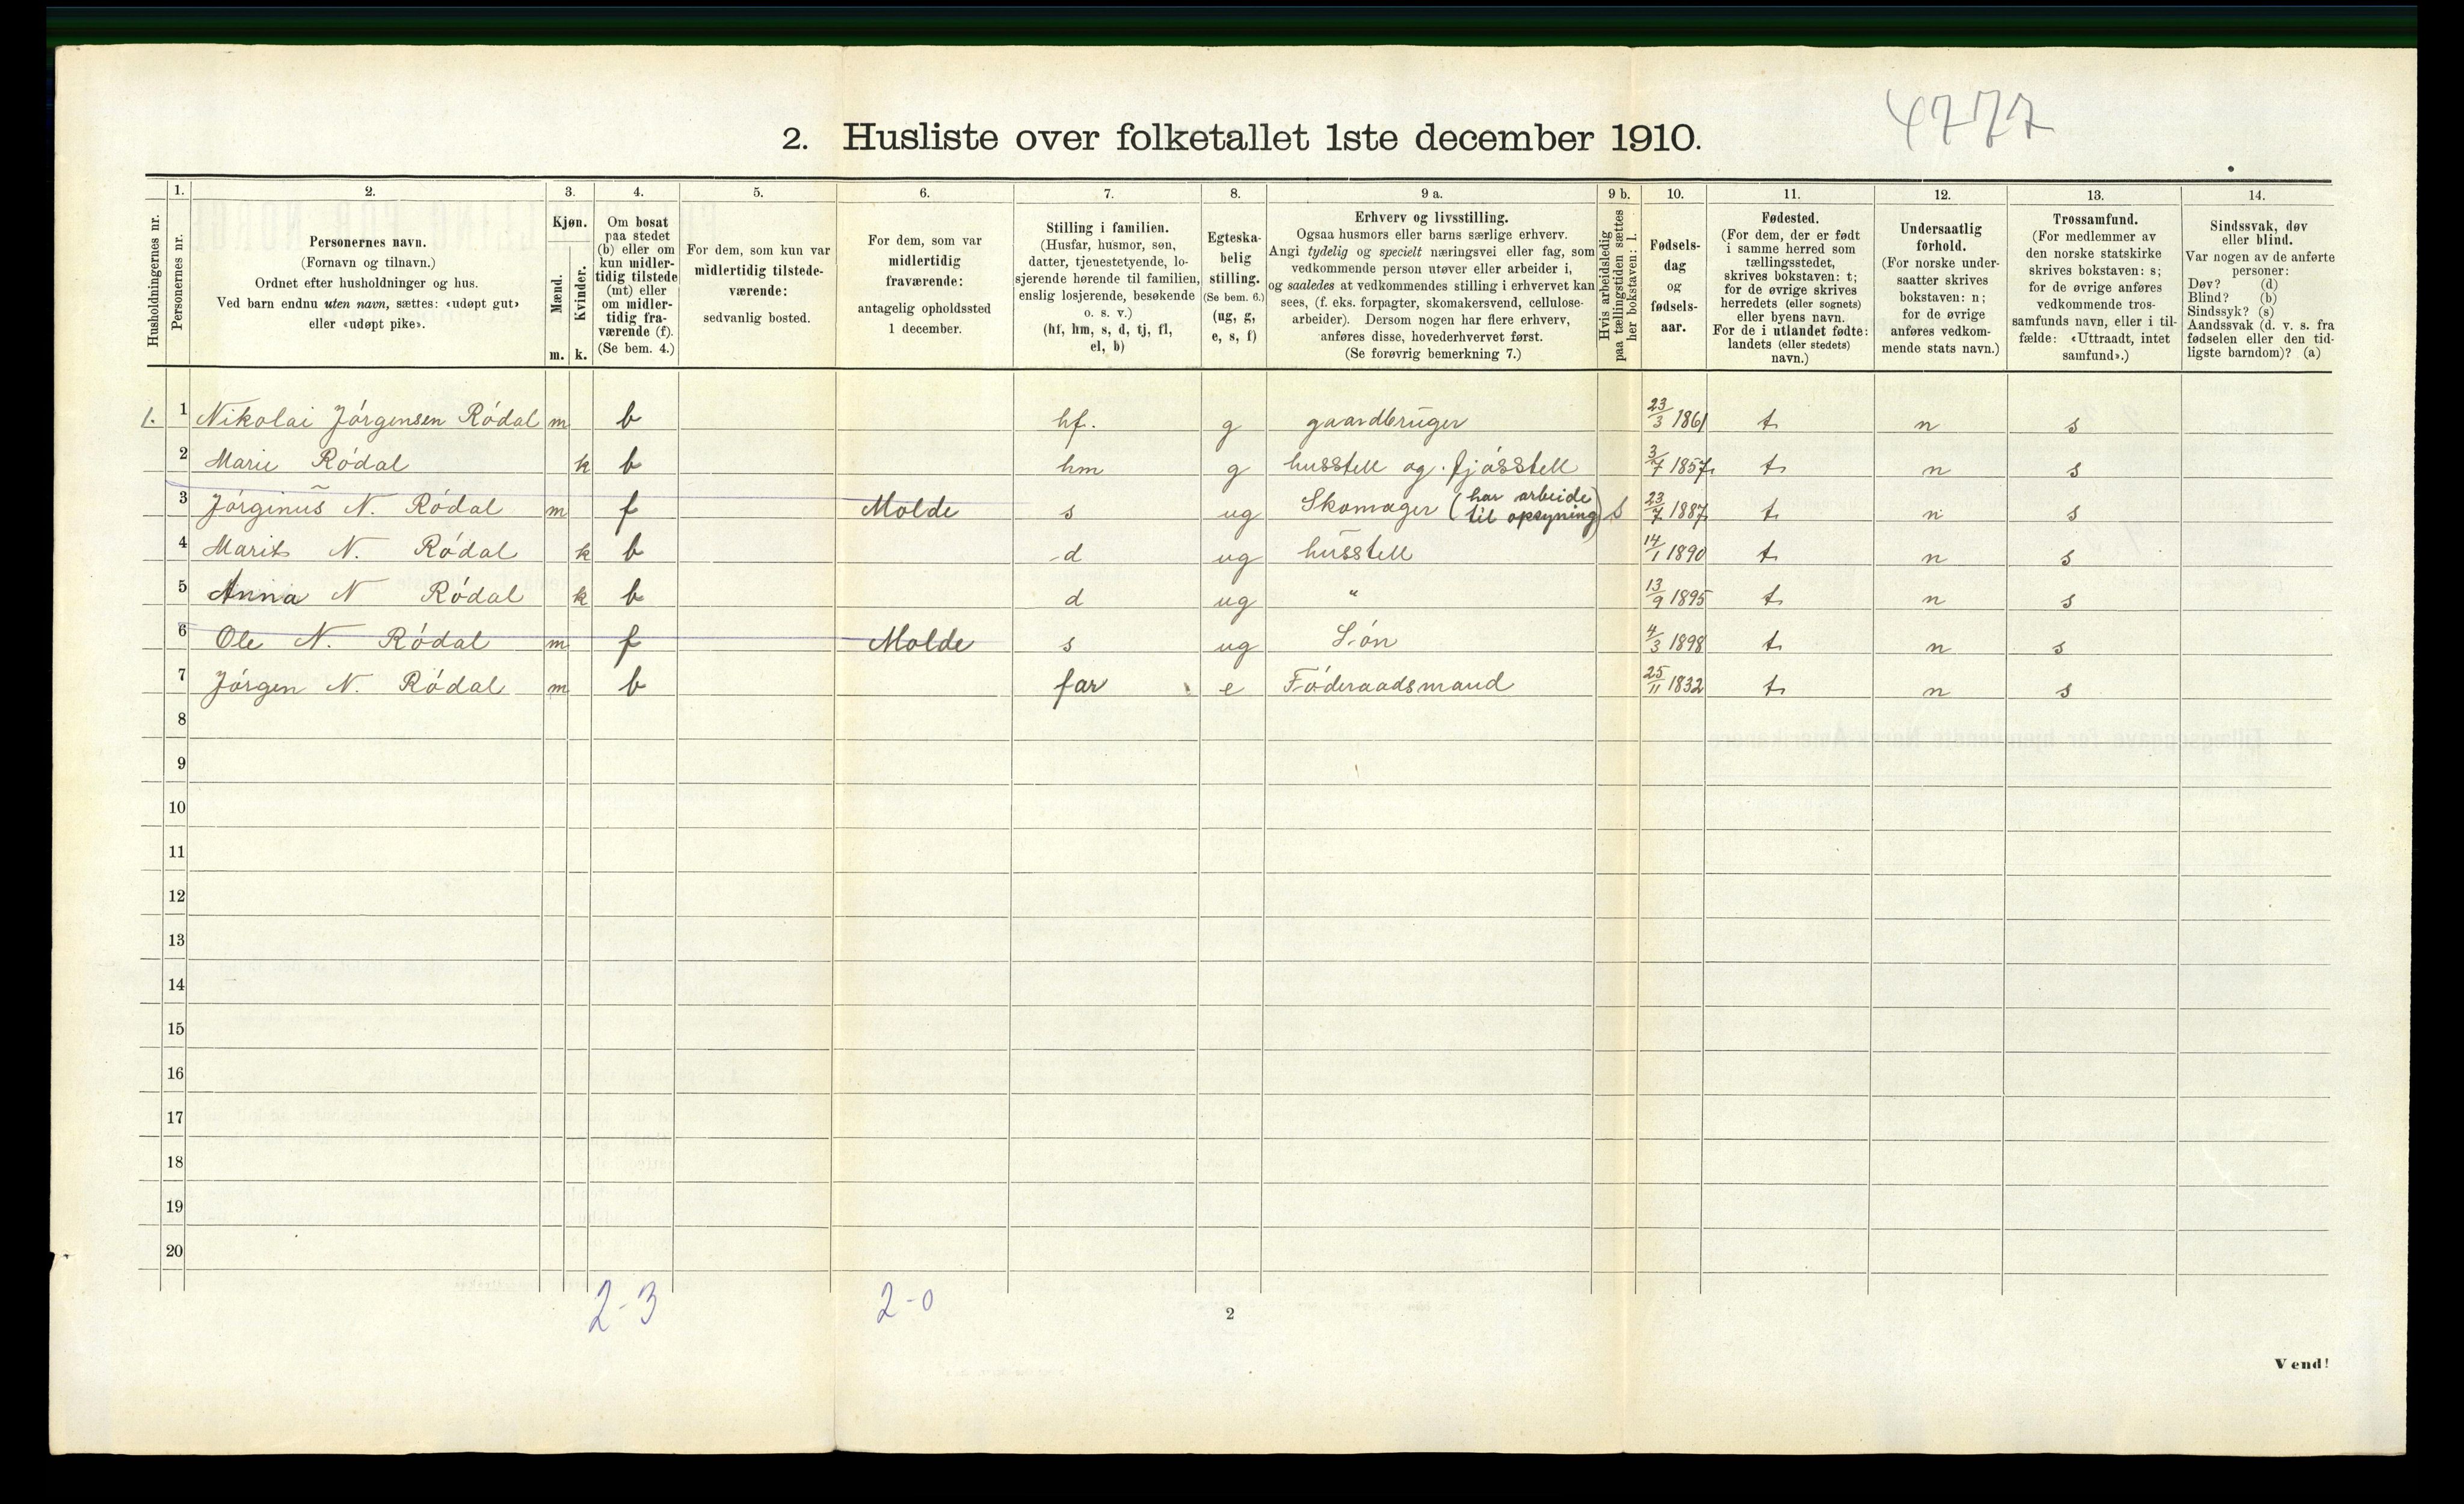 4777
2. Husliste over folketallet 1ste december 1910.
Husholdningernes nr.
1.
Personernes nr.
2.
Personernes navn.
(Fornavn og tilnavn.)
Ordnet efter husholdninger og hus.
Ved barn endnu uten navn, sættes: «udøpt gut»
eller «udøpt pike».
3.
Kjøn.
Mænd.
Kvinder.
m. k.
4.
Om bosat
paa stedet
(b) eller om
kun midler-
tidig tilstede
(mt) eller
om midler-
tidig fra-
værende (f).
(Se bem. 4.)
5.
For dem, som kun var
midlertidig tilstede-
værende:
sedvanlig bosted.
6.
For dem, som var
midlertidig
fraværende:
antagelig opholdssted
1 december.
7.
Stilling i familien.
(Husfar, husmor, søn,
datter, tjenestetyende, lo-
sjerende hørende til familien,
enslig losjerende, besøkende
o. s. v.)
(hf, hm, s, d, tj, fl,
el, b)
8.
Egteska-
belig
stilling.
(Se bem. 6.)
(ug, g,
e, s, f)
9 a.
Erhverv og livsstilling.
Ogsaa husmors eller barns særlige erhverv.
Angi tydelig og specielt næringsvei eller fag, som
vedkommende person utøver eller arbeider i,
og saaledes at vedkommendes stilling i erhvervet kan
sees, (f. eks. forpagter, skomakersvend, cellulose-
arbeider). Dersom nogen har flere erhverv,
anføres disse, hovederhvervet først.
(Se forøvrig bemerkning 7.)
9 b.
Hvis arbeidsledig
paa tællingstiden sættes
her bokstaven: l.
10.
Fødsels-
dag
og
fødsels-
aar.
11.
Fødested.
(For dem, der er født
i samme herred som
tællingsstedet,
skrives bokstaven: t;
for de øvrige skrives
herredets (eller sognets)
eller byens navn.
For de i utlandet fødte:
landets (eller stedets)
navn.)
12.
Undersaatlig
forhold.
(For norske under-
saatter skrives
bokstaven: n;
for de øvrige
anføres vedkom-
mende stats navn.)
13.
Trossamfund.
(For medlemmer av
den norske statskirke
skrives bokstaven: s;
for de øvrige anføres
vedkommende tros-
samfunds navn, eller i til-
fælde: «Uttraadt, intet
samfund».)
14.
Sindssvak, døv
eller blind.
Var nogen av de anførte
personer:
Døv? (d)
Blind? (b)
Sindssyk? (s)
Aandssvak (d. v. s. fra
fødselen eller den tid-
ligste barndom)? (a)
1. 1 Nikolai Jórgensen Ródal m b hf. g gaardbruger 23/3 1861 t n s
2 Marie Ródal k b hm g husstell og fjósstell 3/7 1857 t n s
3 Jórginus N. Ródal m f Molde s ug Skomager (har arbeide til opsyning) 23/7 1887 t n s
4 Marit N. Ródal k b d ug husstell 14/1 1890 t n s
5 Anna N Ródal k b d ug " 13/9 1895 t n s
6 Ole N. Ródal m f Molde s ug Són 4/3 1898 t n s
7 Jórgen N. Ródal m b far e Fóderaadsmand 25/11 1832 t n s
8
9
10
11
12
13
14
15
16
17
18
19
20
2-3 2-0
2
Vend!